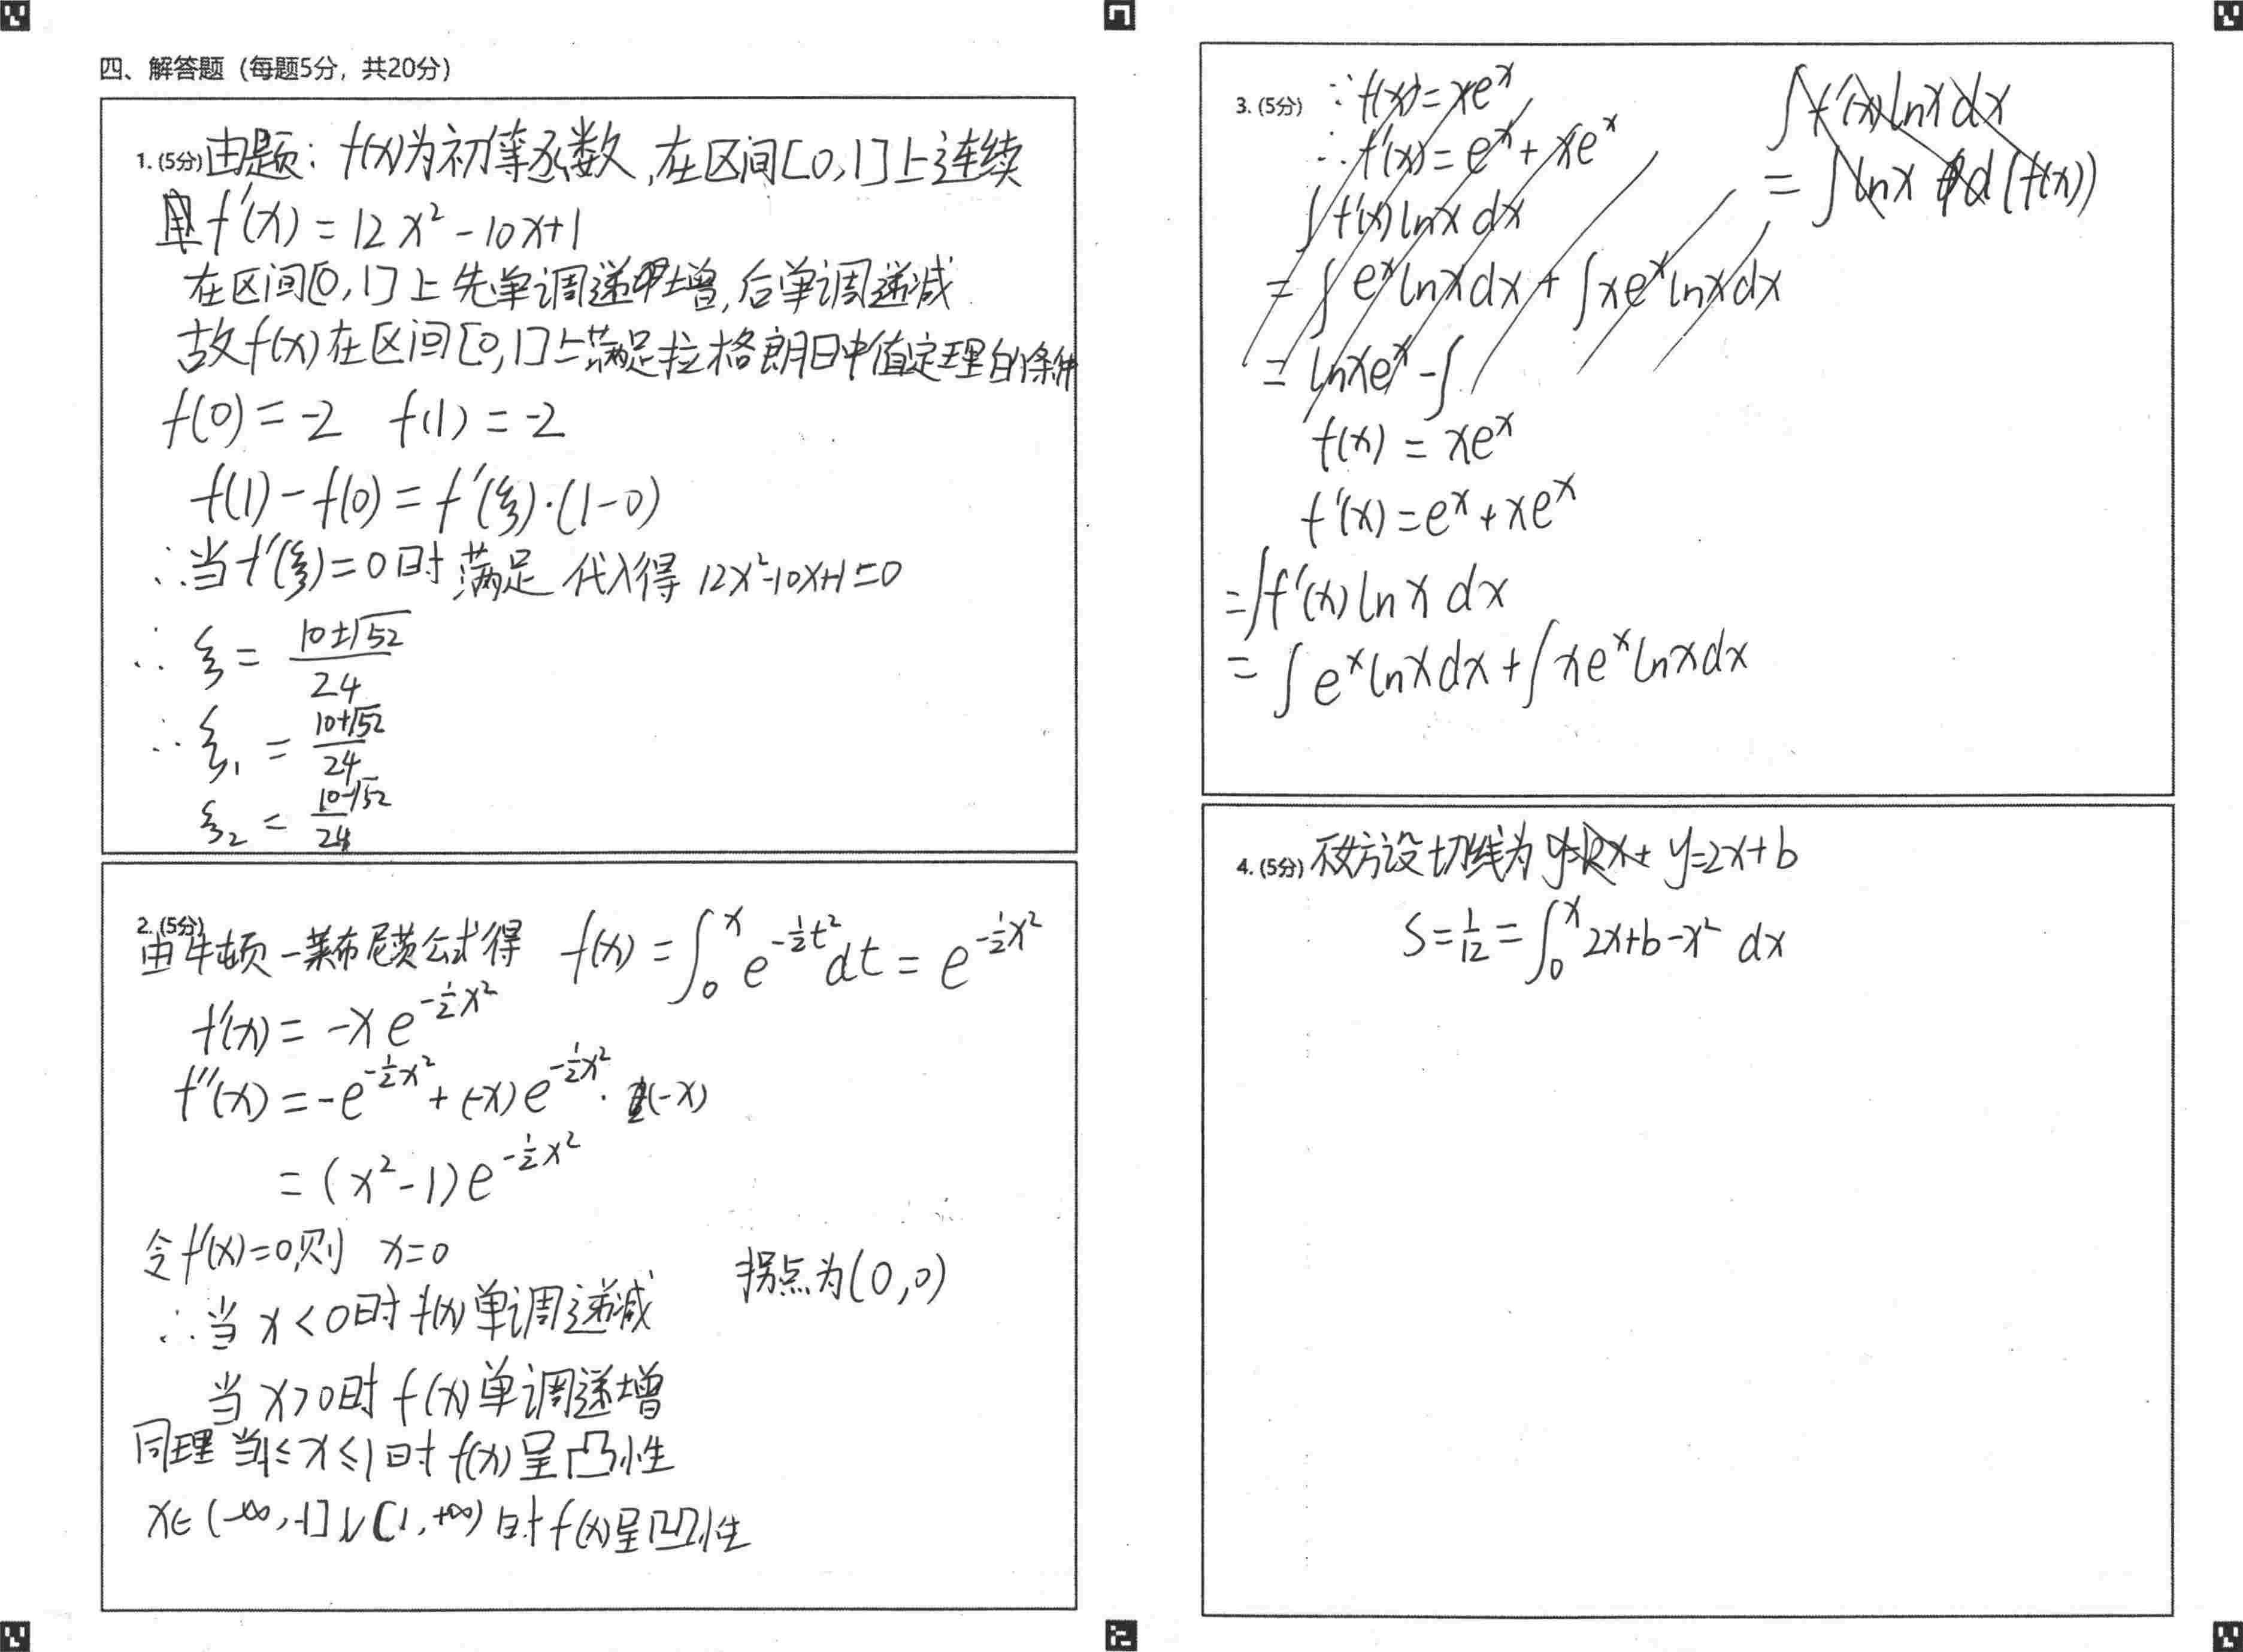 四、解答题（每题5分，共20分）
1. (5分) 由题：f(x)为初等函数,在区间[0,1]上连续
且f′(x) = 12x² - 10x+1
在区间[0,1]上先单调递增,后单调递减
故f(x)在区间[0,1]上满足拉格朗日中值定理的条件
f(0) = -2 f(1) = -2
f(1) - f(0) = f′(ξ)·(1-0)
∴当f′(ξ)=0时 满足 代入得 12x²-10x+1=0
∴ ξ = (10±√52)/24
∴ ξ₁ = (10+√52)/24
ξ₂ = (10-√52)/24
2. (5分)
由牛顿-莱布尼茨公式得 f(x) = ∫₀ˣ e^(-½t²) dt = e^(-½x²)
f′(x) = -x e^(-½x²)
f″(x) = -e^(-½x²) + (-x)e^(-½x²)·(-x)
= (x²-1)e^(-½x²)
令f′(x)=0,则 x=0
拐点为(0,0)
∴当 x<0时 f(x)单调递减
当 x>0时 f(x)单调递增
同理 当1≤x≤1时 f(x)呈凸性
x∈(-∞,-1]∪[1,+∞)时 f(x)呈凹性
3. (5分) ∵f(x)=xeˣ
∴f′(x)=eˣ+xeˣ
∫f′(x)lnx dx
= ∫eˣlnxdx + ∫xeˣlnxdx
= lnxeˣ - ∫
∫f′(x)lnxdx
= ∫lnx d(f(x))
f(x) = xeˣ
f′(x) = eˣ+xeˣ
=∫f′(x)lnx dx
= ∫eˣlnxdx+∫xeˣlnxdx
4. (5分) 不妨设切线为 y=kx+ y=2x+b
S=1/12=∫₀ˣ 2x+b-x² dx